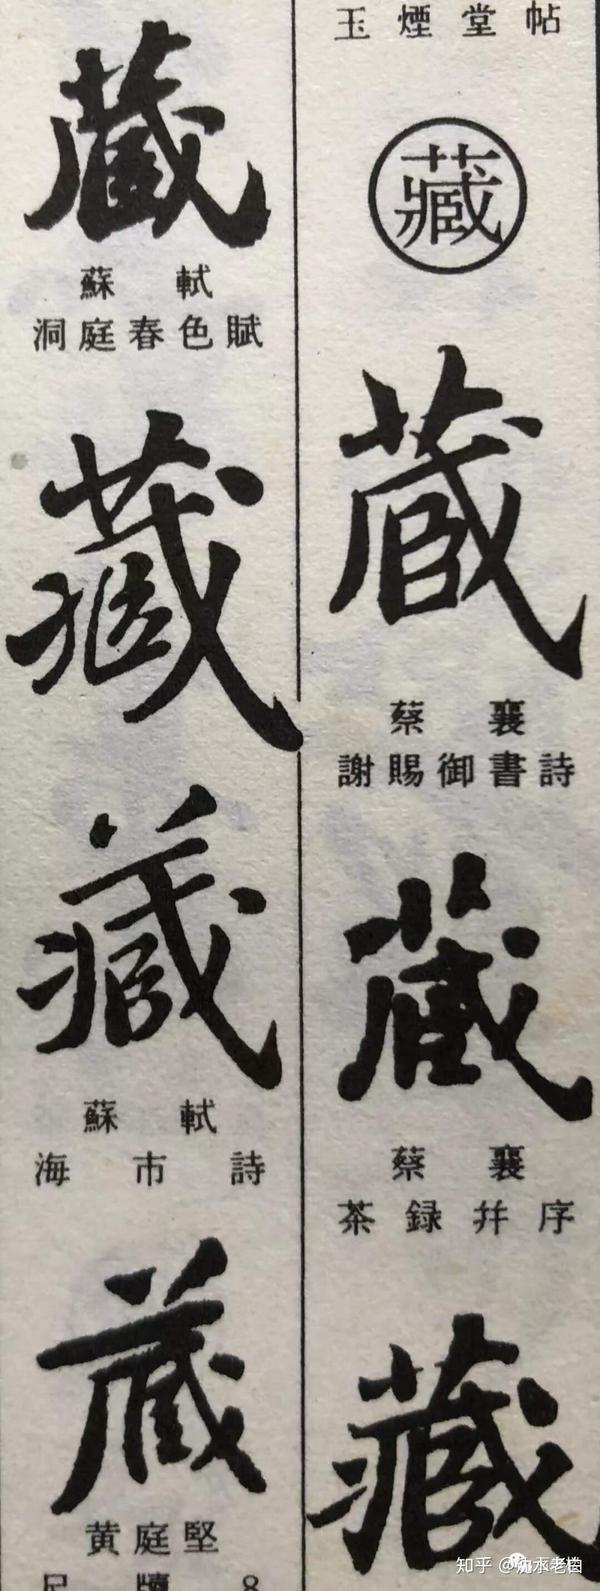 玉煙堂帖
藏
藏
蔡襄
謝賜御書詩
藏
蔡襄
茶録并序
藏
藏
蘇軾
洞庭春色賦
藏
藏
蘇軾
海市詩
藏
黄庭堅
尺牘8
知乎